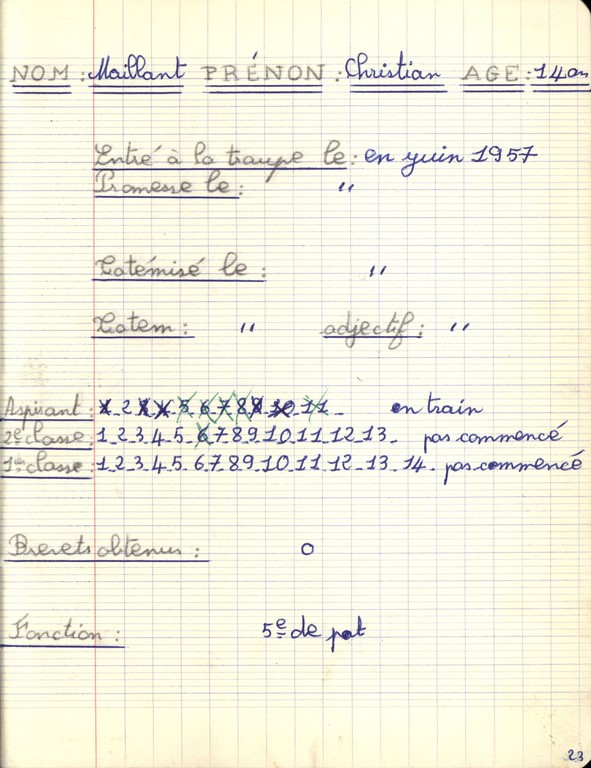 NOM : Maillant PRÉNON : Christian AGE : 14 an
Entré à la troupe le : en yuin 1957
Promesse le : "
Totémisé le : "
Totem : " adjectif : "
Aspirant : 1 2 3 4 5 6 7 8 9 10 11 _ en train
2e classe : 1 _ 2 _ 3 _ 4 _ 5 _ 6 7 8 9 _ 10 _ 11 _ 12 _ 13 _ pas commencé
1e classe : 1 _ 2 _ 3 _ 4 _ 5 _ 6 7 8 9 _ 10 _ 11 _ 12 _ 13 _ 14 _ pas commencé
Brevets obtenus : 0
Fonction : 5e de pat
23